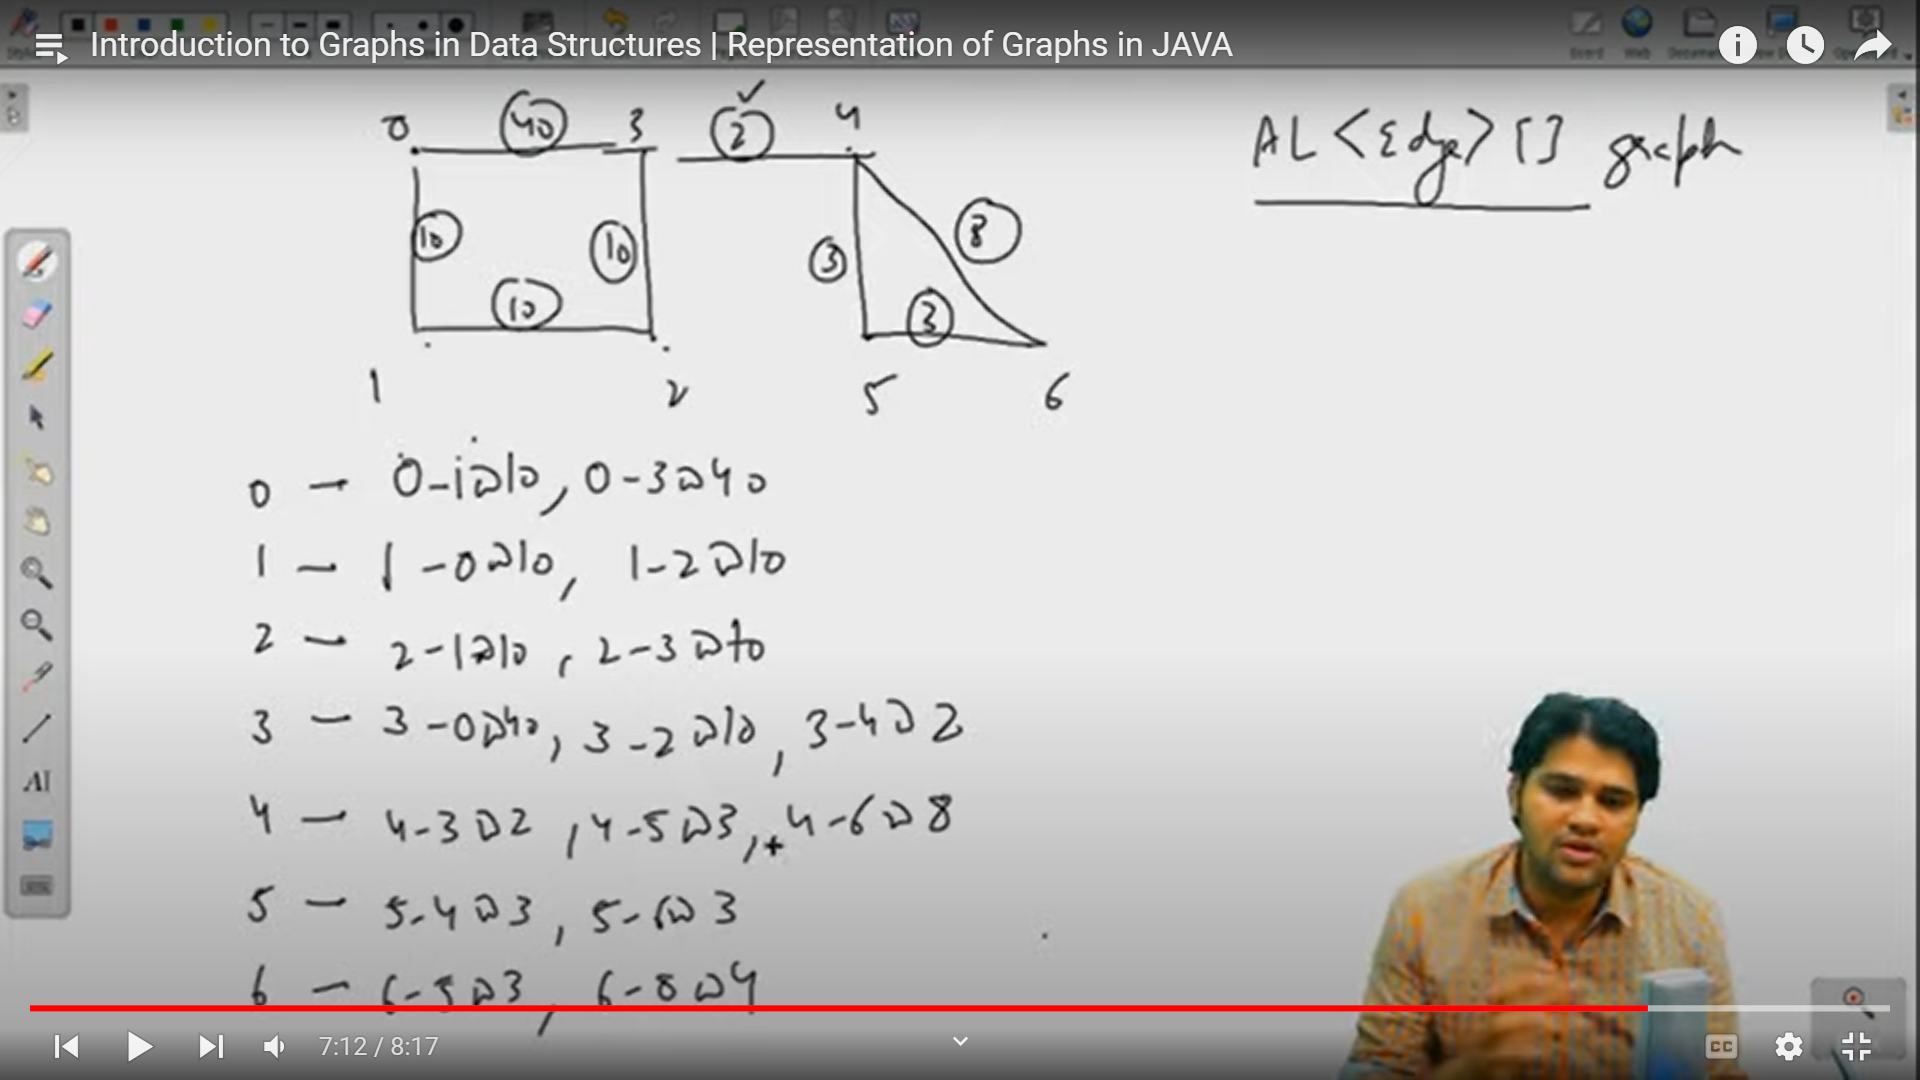 Introduction to Graphs in Data Structures | Representation of Graphs in JAVA
0 40 3 2 4
AL <Edge> [] graph
10 10 3 8
10 3
1 2 5 6
0 - 0-1@10, 0-3@40
1 - 1-0@10, 1-2@10
2 - 2-1@10, 2-3@10
3 - 3-0@40, 3-2@10, 3-4@2
4 - 4-3@2, 4-5@3, 4-6@8
5 - 5-4@3, 5-6@3
6 - 6-5@3, 6-8@4
AI
7:12 / 8:17
CC